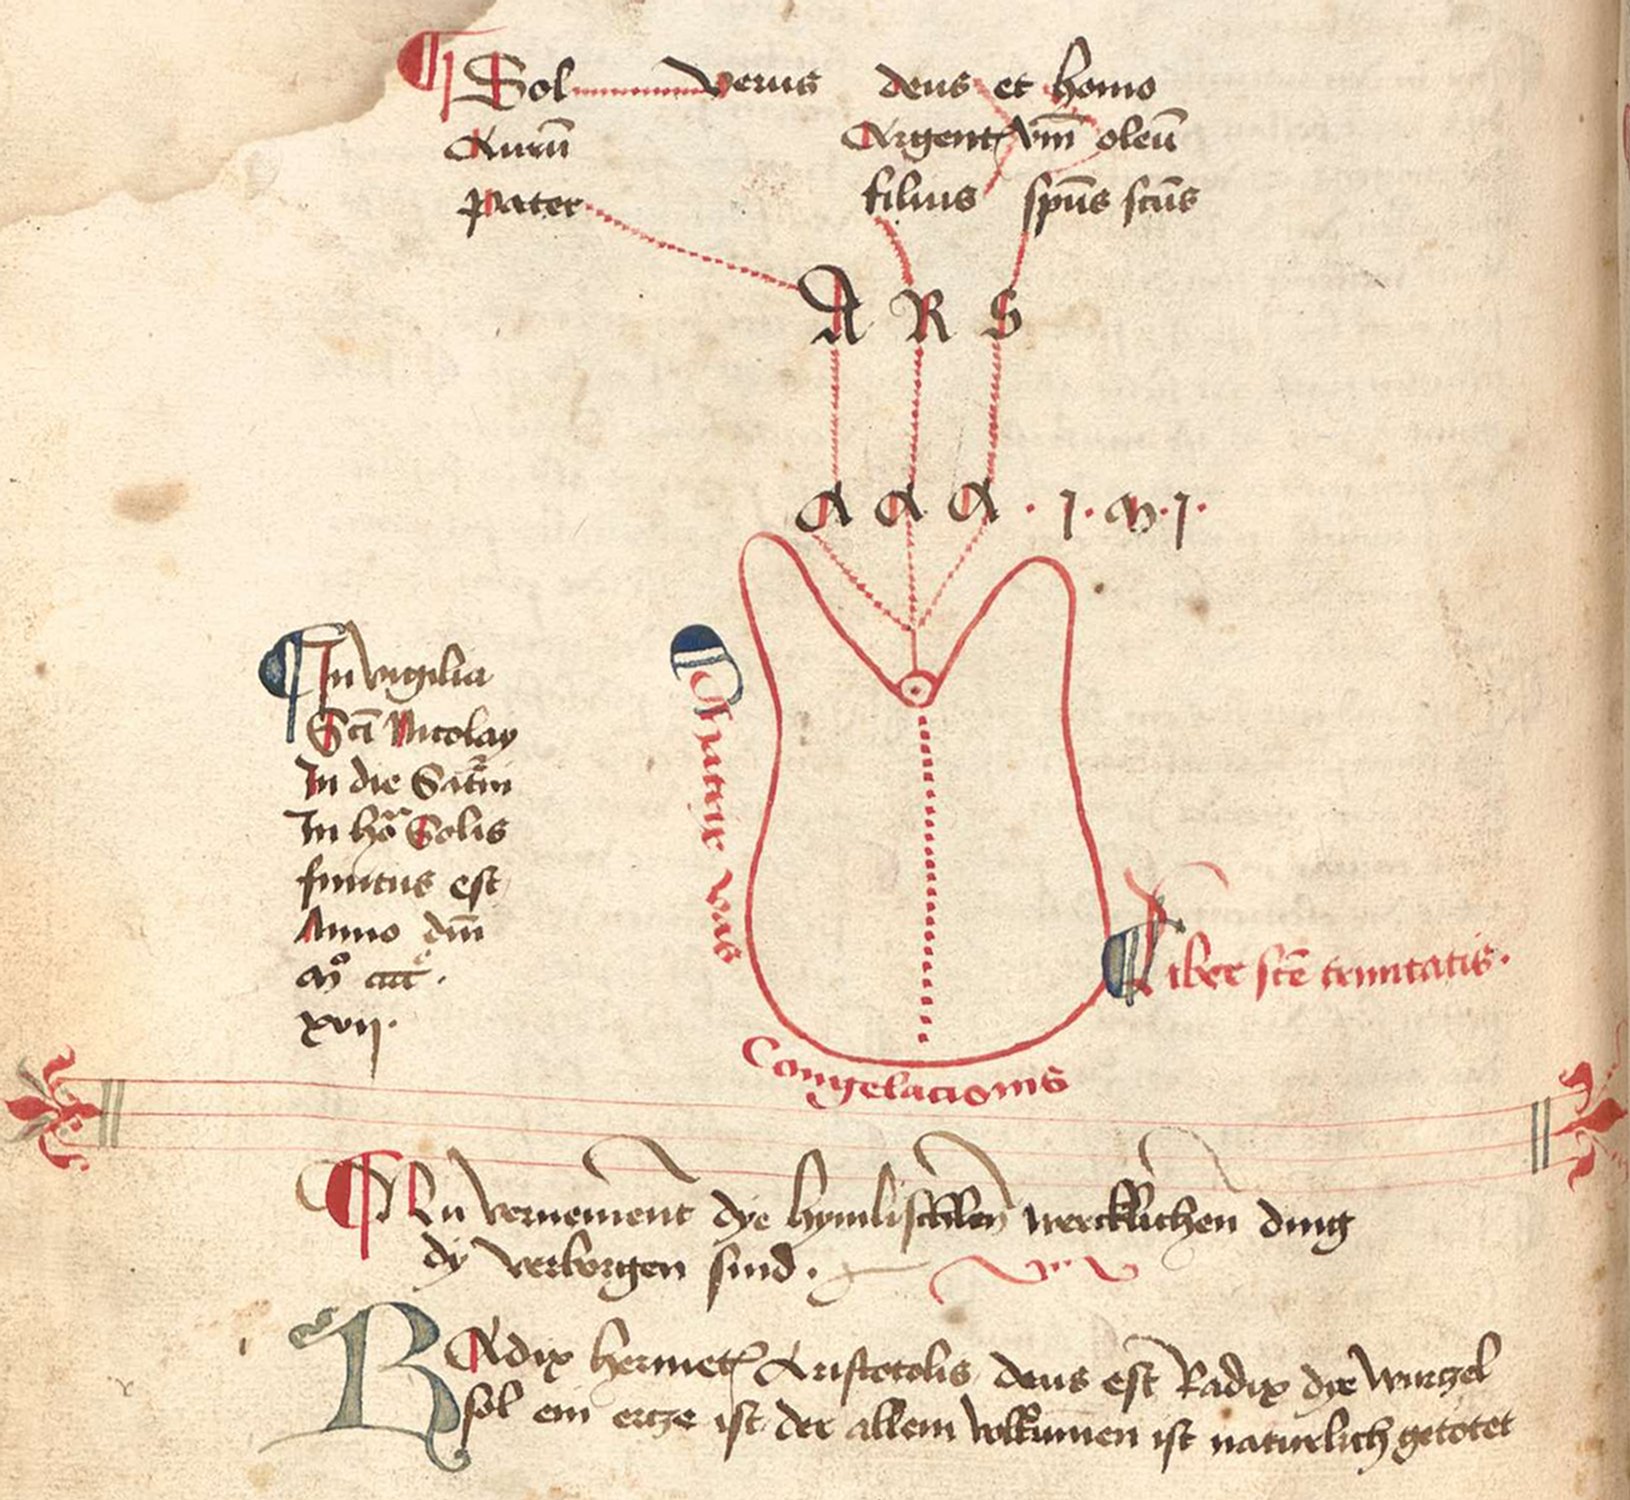 Sol verus deus et homo
Aurū Argent vivū oleū
pater filius spūs scūs
A R S
A A A · J · M · J ·
In vigilia
Scī Nicolay
In die Satrni
In hora Solis
finitus est
Anno dm̄
mo cccc
xvij ·
Matrix vas
Liber scē trinitatis ·
Congelacionis
Nu vernement dye hymlischlen wercklichen ding
dy verborgen sind ·
RAdix hermet Aristotolis deus est Radix dye wurczel
sol ein ercze ist der allem volkumen ist naturlich getotet